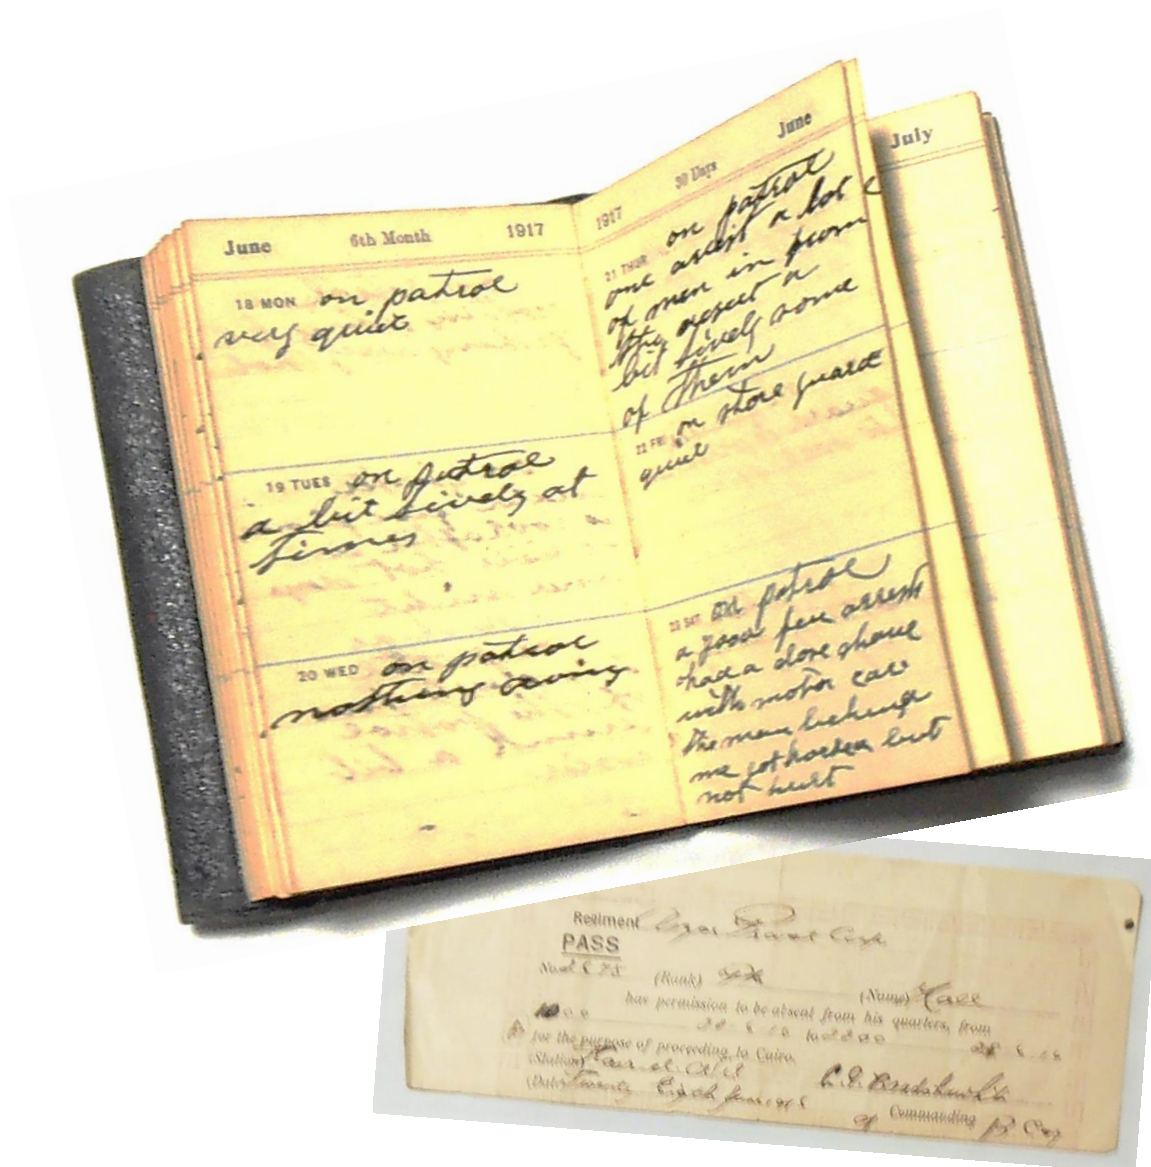 June 6th Month 1917
18 MON on patrol
very quiet
19 TUES on patrol
a bit lively at
times
20 WED on patrol
nothing doing
1917 30 Days June
21 THUR on patrol
one arrest a lot
of men in from
the desert a
bit lively some
of them
22 FRI on shore guard
quiet
23 SAT on patrol
a good few arrests
had a close shave
with motor car
the man behind
me got knocked but
not hurt
July
Regiment
PASS
No. (Rank) (Name) Hall
has permission to be absent from his quarters, from
to 2200
for the purpose of proceeding to Cairo.
(Station)
(Date) Twenty Eighth June
Commanding